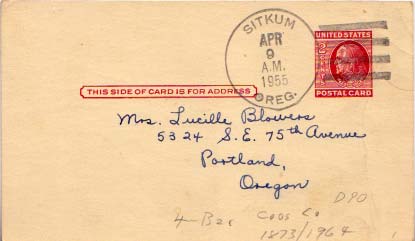 SITKUM
APR
9
A.M.
1955
OREG.
UNITED STATES
POSTAL CARD
THIS SIDE OF CARD IS FOR ADDRESS
Mrs. Lucille Blowers
5324 S.E. 75th Avenue
Portland,
Oregon
DPO
4-Bar Coos Co
1873/1964